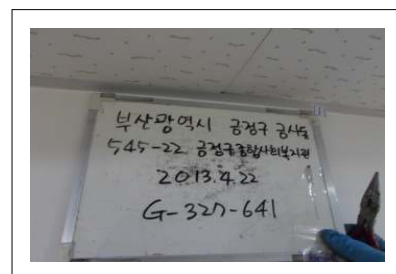 부산광역시 금정구 금사동
545-22 금정구종합사회복지관
2013.4.22
G-327-641